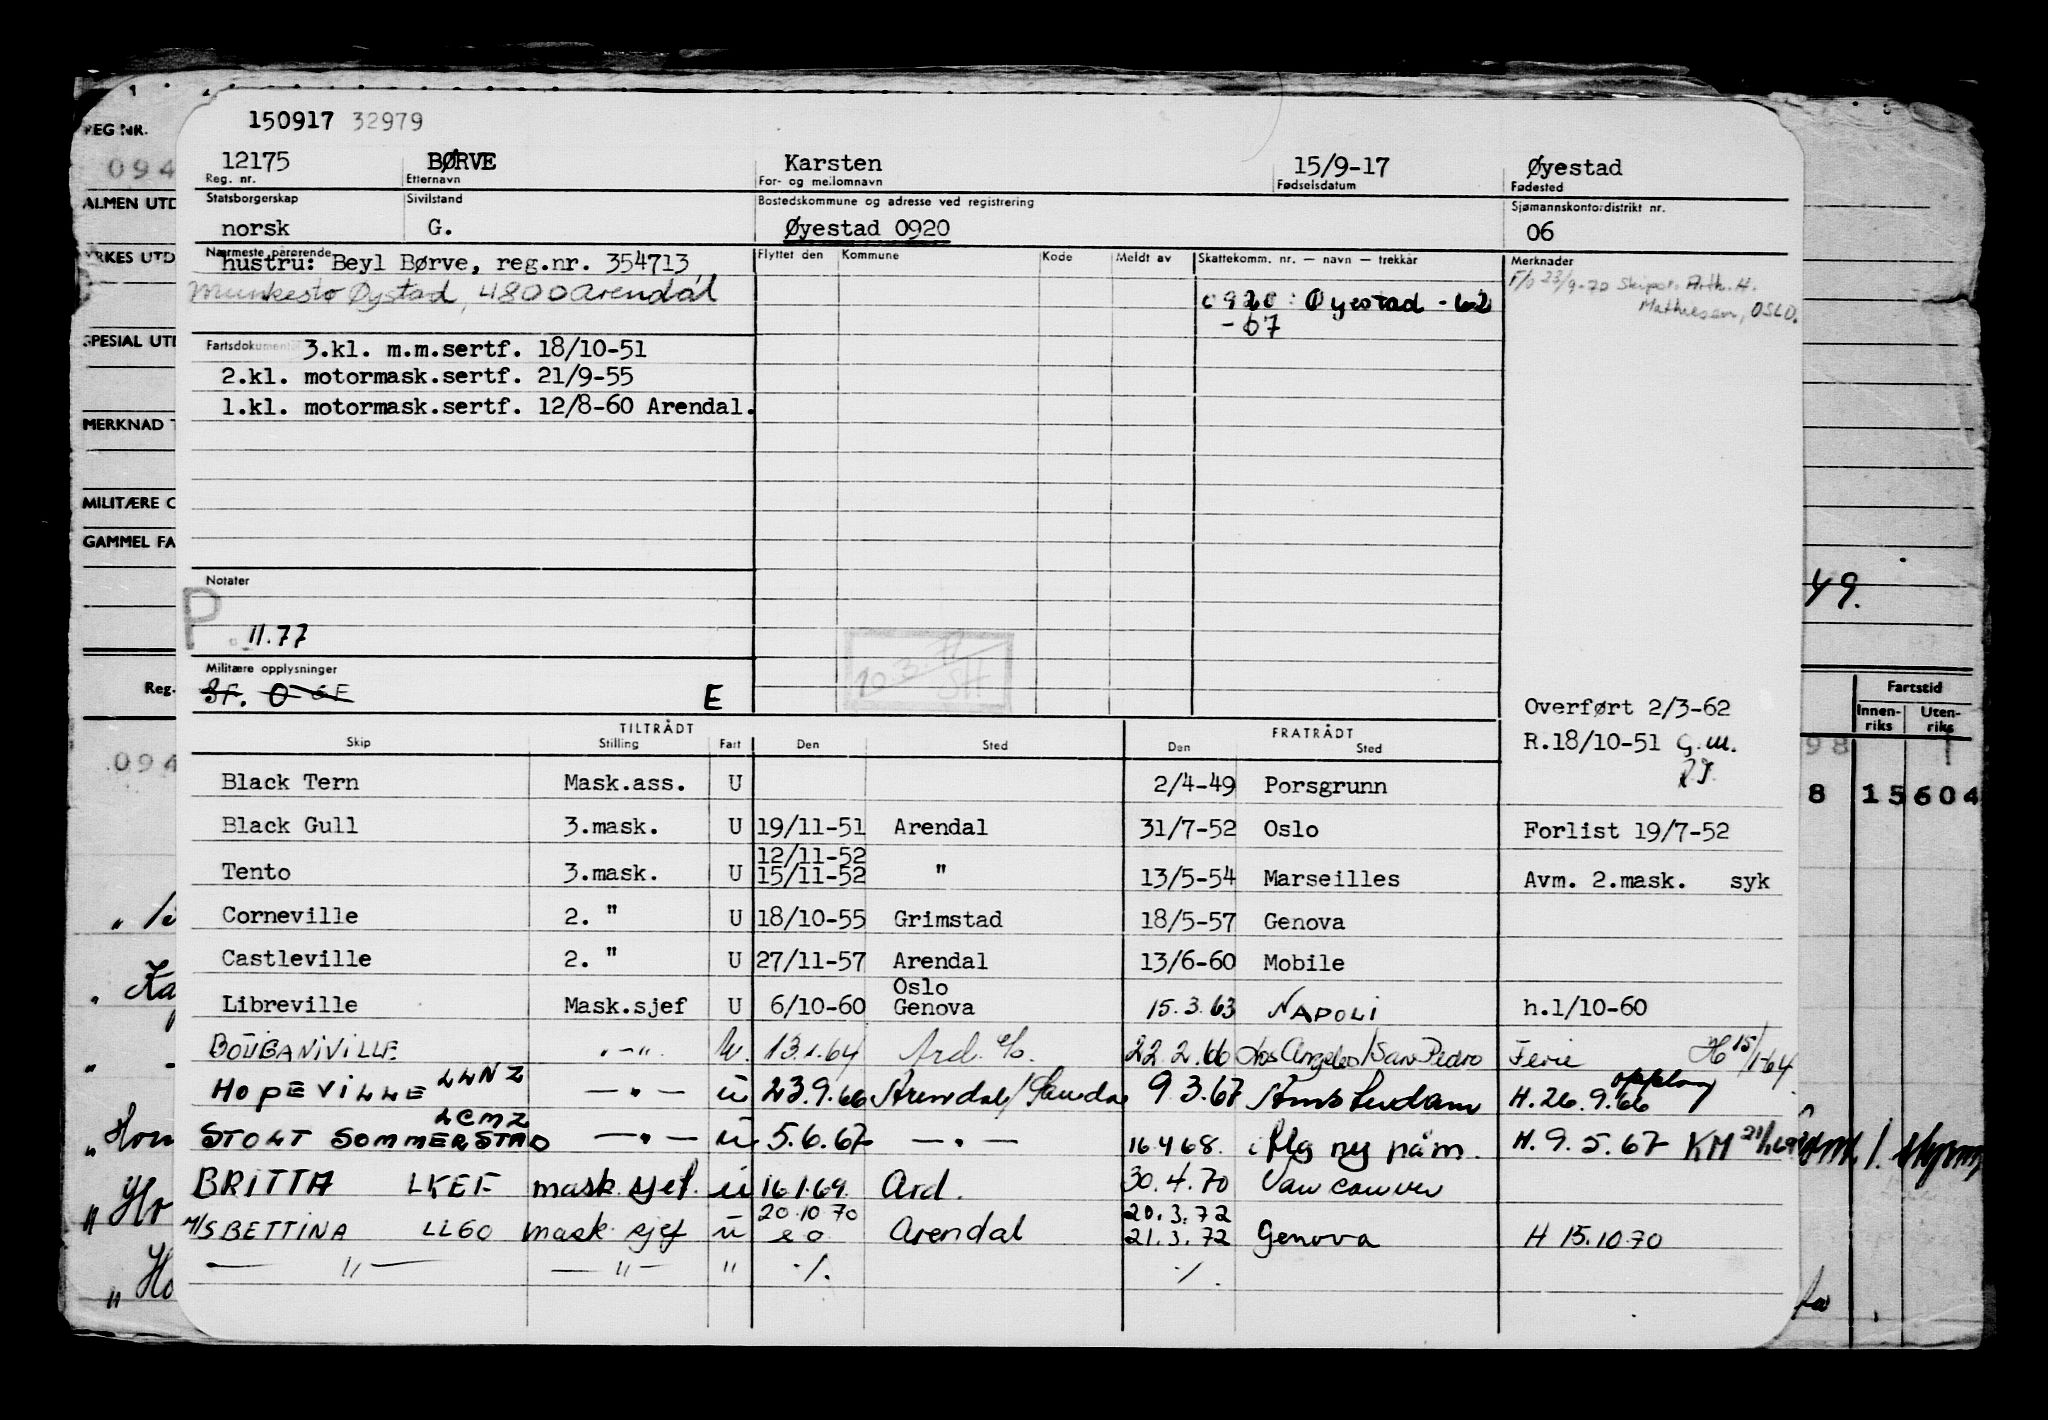 150917 32979
12175 BØRVE Karsten 15/9-17 Øyestad
Reg. nr. Etternavn For- og mellomnavn Fødselsdatum Fødested
Statsborgerskap Sivilstand Bostedskommune og adresse ved registrering Sjømannskontordistrikt nr.
norsk G. Øyestad 0920 06
Nærmeste pårørende Flyttet den Kommune Kode Meldt av Skattekomm. nr. — navn — trekkår Merknader
hustru: Beyl Børve, reg.nr. 354713
Øystad, 4800 Arendal
F/O 23/9-70 Skipsr. Arth. H. Mathiesen, OSLO.
0920: Øyestad - 62
- 67
Fartsdokumenter 3.kl. m.m.sertf. 18/10-51
2.kl. motormask.sertf. 21/9-55
1.kl. motormask.sertf. 12/8-60 Arendal.
Notater
P.
11.77
Militære opplysninger
E
Overført 2/3-62
R.18/10-51 G.M.
TILTRÅDT FRATRÅDT
Skip Stilling Fart Den Sted Den Sted
Black Tern Mask.ass. U 2/4-49 Porsgrunn
Black Gull 3.mask. U 19/11-51 Arendal 31/7-52 Oslo Forlist 19/7-52
12/11-52
Tento 3.mask. U 15/11-52 " 13/5-54 Marseilles Avm. 2.mask. syk
Corneville 2. " U 18/10-55 Grimstad 18/5-57 Genova
Castleville 2. " U 27/11-57 Arendal 13/6-60 Mobile
Oslo
Libreville Mask.sjef U 6/10-60 Genova 15.3.63 NAPOLI h.1/10-60
BOUGANIVILLE " - " U. 13.1.64 Ard. 22.2.66 Los Angeles/San Pedro Ferie H 15/1-64
HOPEVILLE LLNZ — " — U 23.9.66 Arendal/ 9.3.67 Amsterdam H. 26.9.66
STOLT SOMMERSTAD LCMZ — " — U 5.6.67 — " — 16.4.68. ny påm. H. 9.5.67 KM
BRITTA LKEF mask sjef. U 16.1.69. Ard. 30.4.70 Vancouver
20.10.70 20.3.72
M/S BETTINA LL60 mask. sjef U Arendal 21.3.72 Genova H 15.10.70
— " — — " — " ./. ./.
REG NR.
094
ALMEN UTD
YRKES UTD
SPESIAL UTD
MERKNAD
MILITÆRE O
GAMMEL FA
Reg.
094
49.
Fartstid
Innen-riks Uten-riks
98
8 15 604